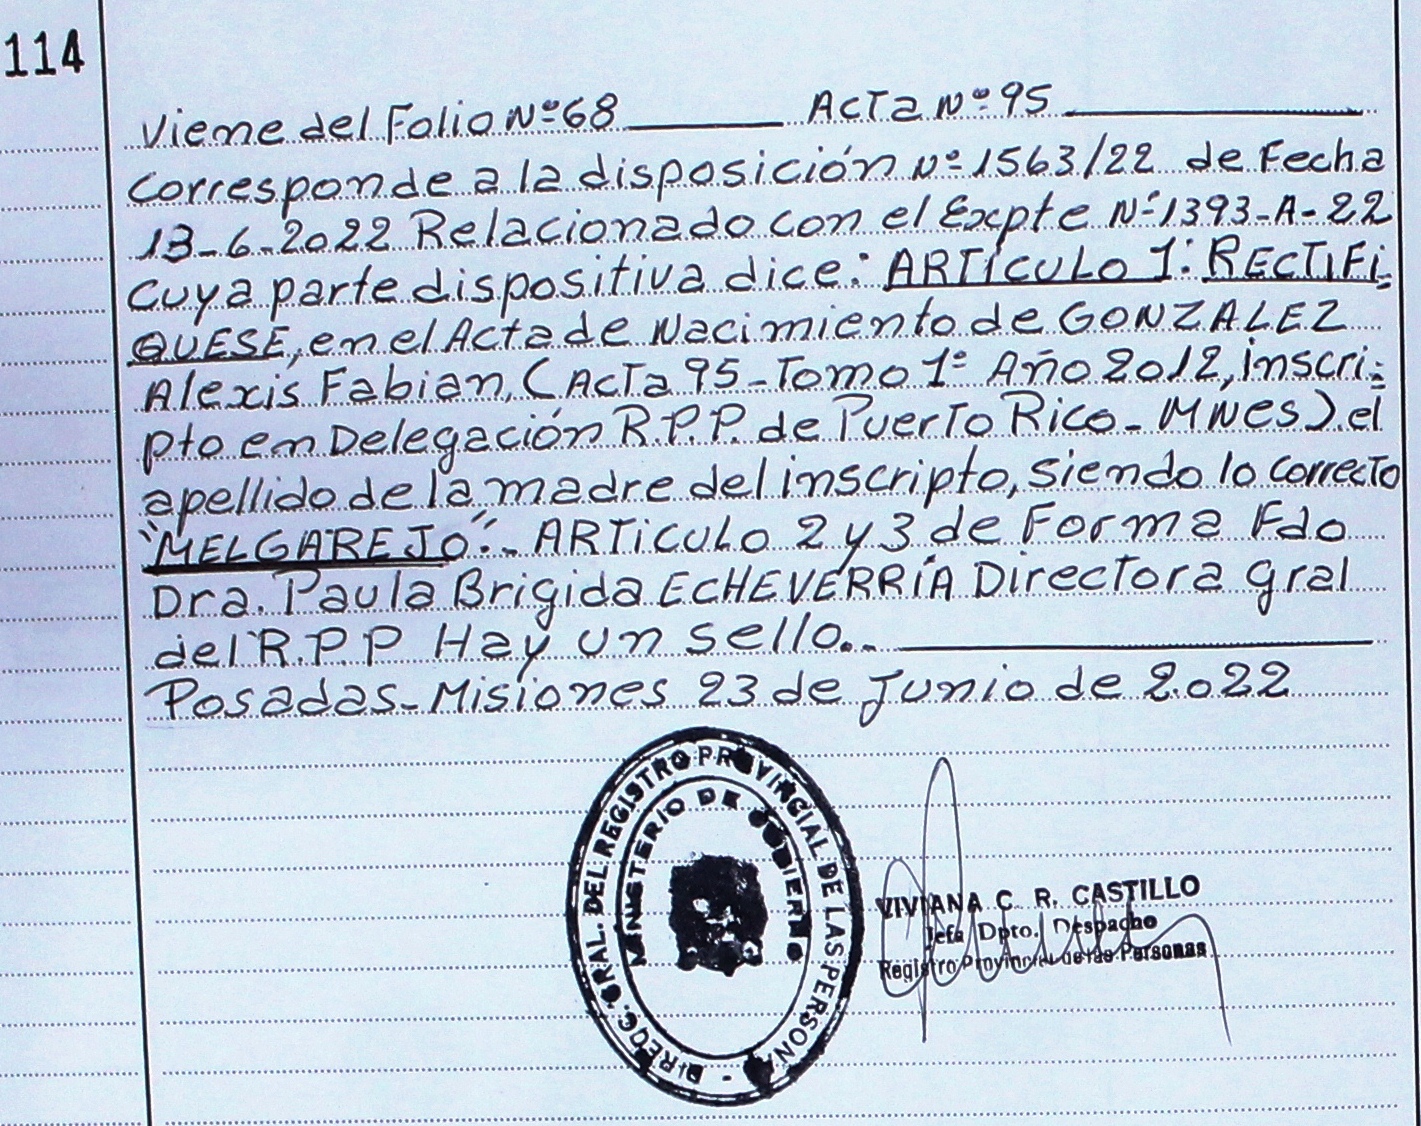 114
Viene del Folio Nº 68 Acta Nº 95
Corresponde a la disposición Nº 1563/22 de Fecha
13-6-2022 Relacionado con el Expte Nº 1393-A-22
Cuya parte dispositiva dice: ARTÍCULO 1: RECTIFI-
QUESE, en el Acta de Nacimiento de GONZALEZ
Alexis Fabian, (Acta 95-Tomo 1º Año 2012, inscri-
pto en Delegación R.P.P. de Puerto Rico - MNES). el
apellido de la madre del inscripto, siendo lo correcto
"MELGAREJO".- ARTICULO 2 y 3 de Forma Fdo
Dra. Paula Brigida ECHEVERRÍA Directora Gral
del R.P.P Hay un sello..
Posadas-Misiones 23 de Junio de 2022
DIRECC. GRAL. DEL REGISTRO PROVINCIAL DE LAS PERSONAS
MINISTERIO DE GOBIERNO
VIVIANA C. R. CASTILLO
Jefa Dpto. Despacho
Registro Provincial de las Personas